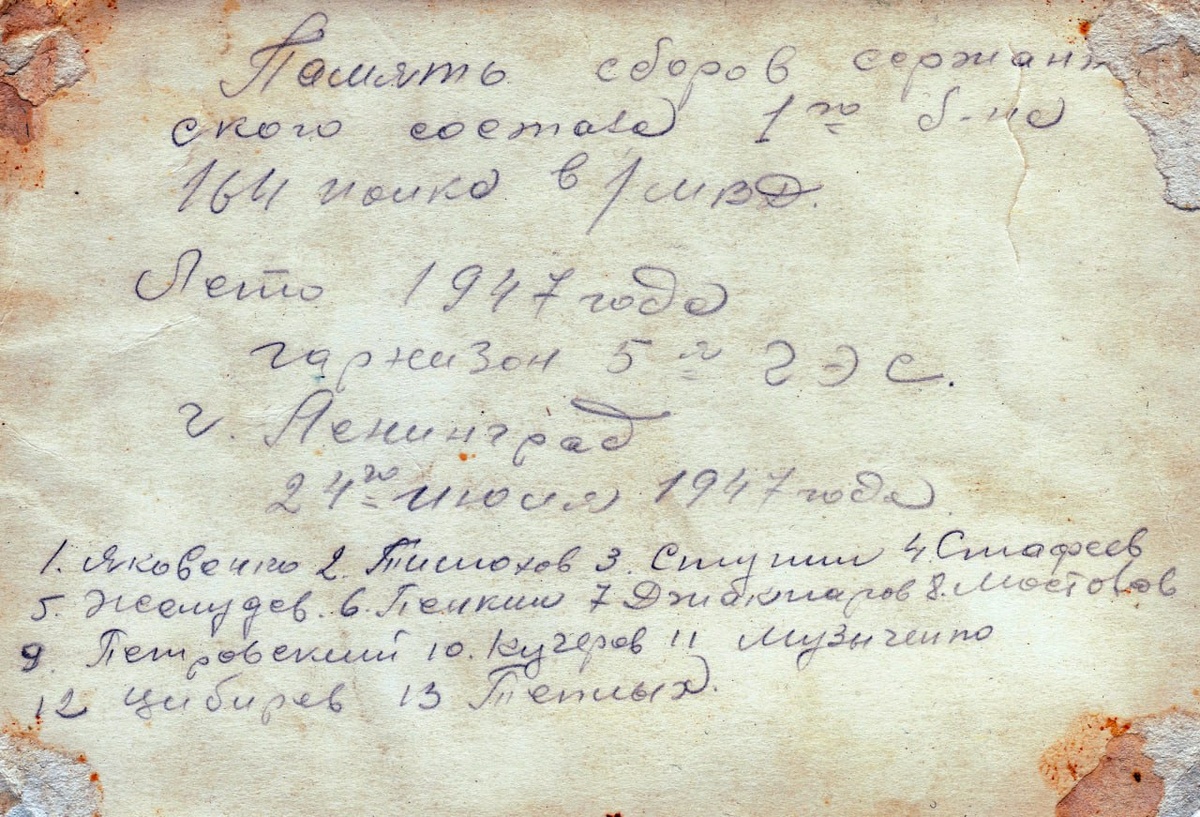 Память сборов сержант
ского состава 1го б-на
164 полка в/МВД.
Лето 1947 года
гарнизон 5я ГЭС.
г. Ленинград
24го июля 1947 года
1. Яковенко 2. Тимохов 3. Ступин 4. Стафеев
5. Желудев. 6. Пенкин 7 Джакмаров 8. Мостовов
9. Петровский 10. Кучеров 11 Музыченко
12 Цибирев 13 Теплых.